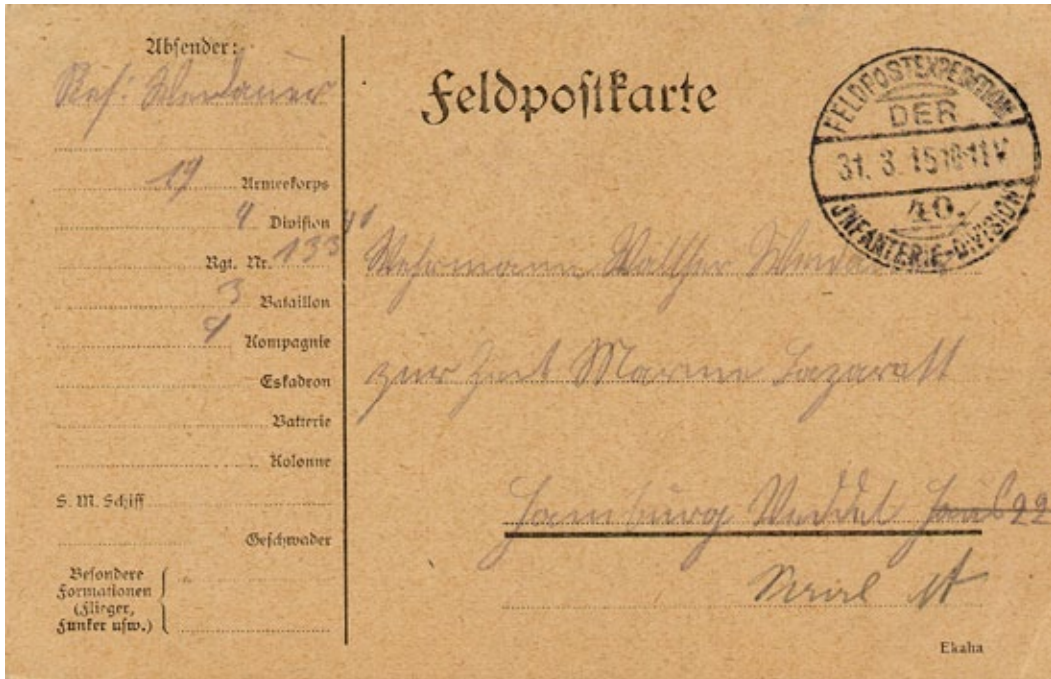 Absender:
Feldpostkarte
19 Armeekorps
Division 40
Rgt. Nr. 133
3 Bataillon
9 Kompagnie
Eskadron
Batterie
Kolonne
S. M. Schiff
Geschwader
Besondere
Formationen
(Flieger,
Funker usw.)
FELDPOSTEXPEDITION
DER
31. 3. 15 10-11 V
40.
INFANTERIE-DIVISION
Wehrmann Walther
zur Zeit Marine Lazarett
Hamburg Veddel Saal 22
Saal
Ekaha